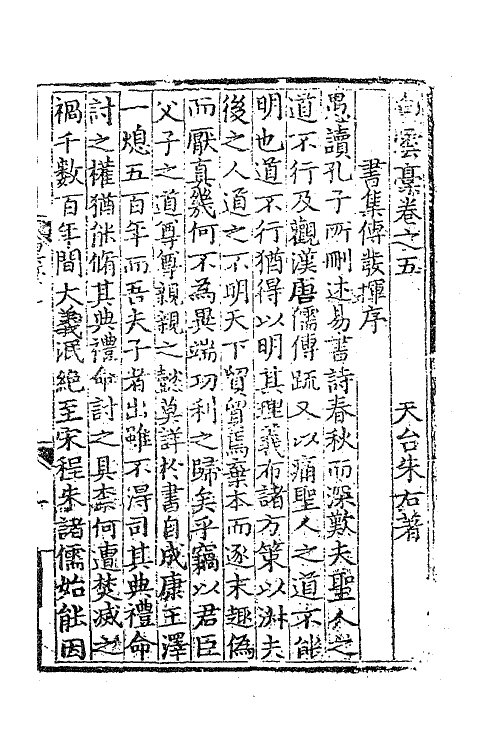 白雲稾卷之五　　　　天台朱右著
書集傳發揮序
愚讀孔子所刪述易書詩春秋而深歎夫聖人之
道不行及觀漢唐儒傳䟽又以痛聖人之道不能
明也道不行猶得以明其理義布諸方策以淑夫
後之人道之不明天下貿貿焉棄本而逐末趣僞
而厭真幾何不為異端功利之歸矣乎竊以君臣
父子之道尊尊親親之懿莫詳於書自成康王澤
一熄五百年而吾夫子者出雖不得司其典禮命
討之權猶能脩其典禮命討之具柰何遭焚滅之
禍千數百年間大義泯絶至宋程朱諸儒始能因